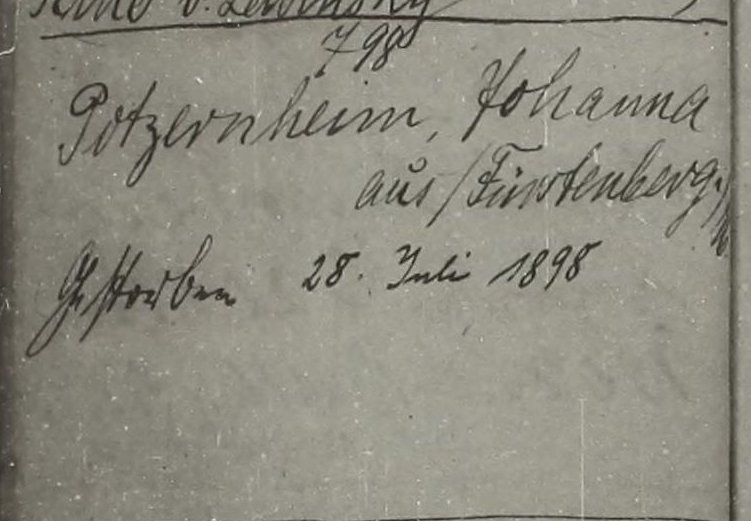 Kind v. Lewinsky
798
Potzernheim, Johanna
aus Fürstenberg.
Gestorben 28. Juli 1898